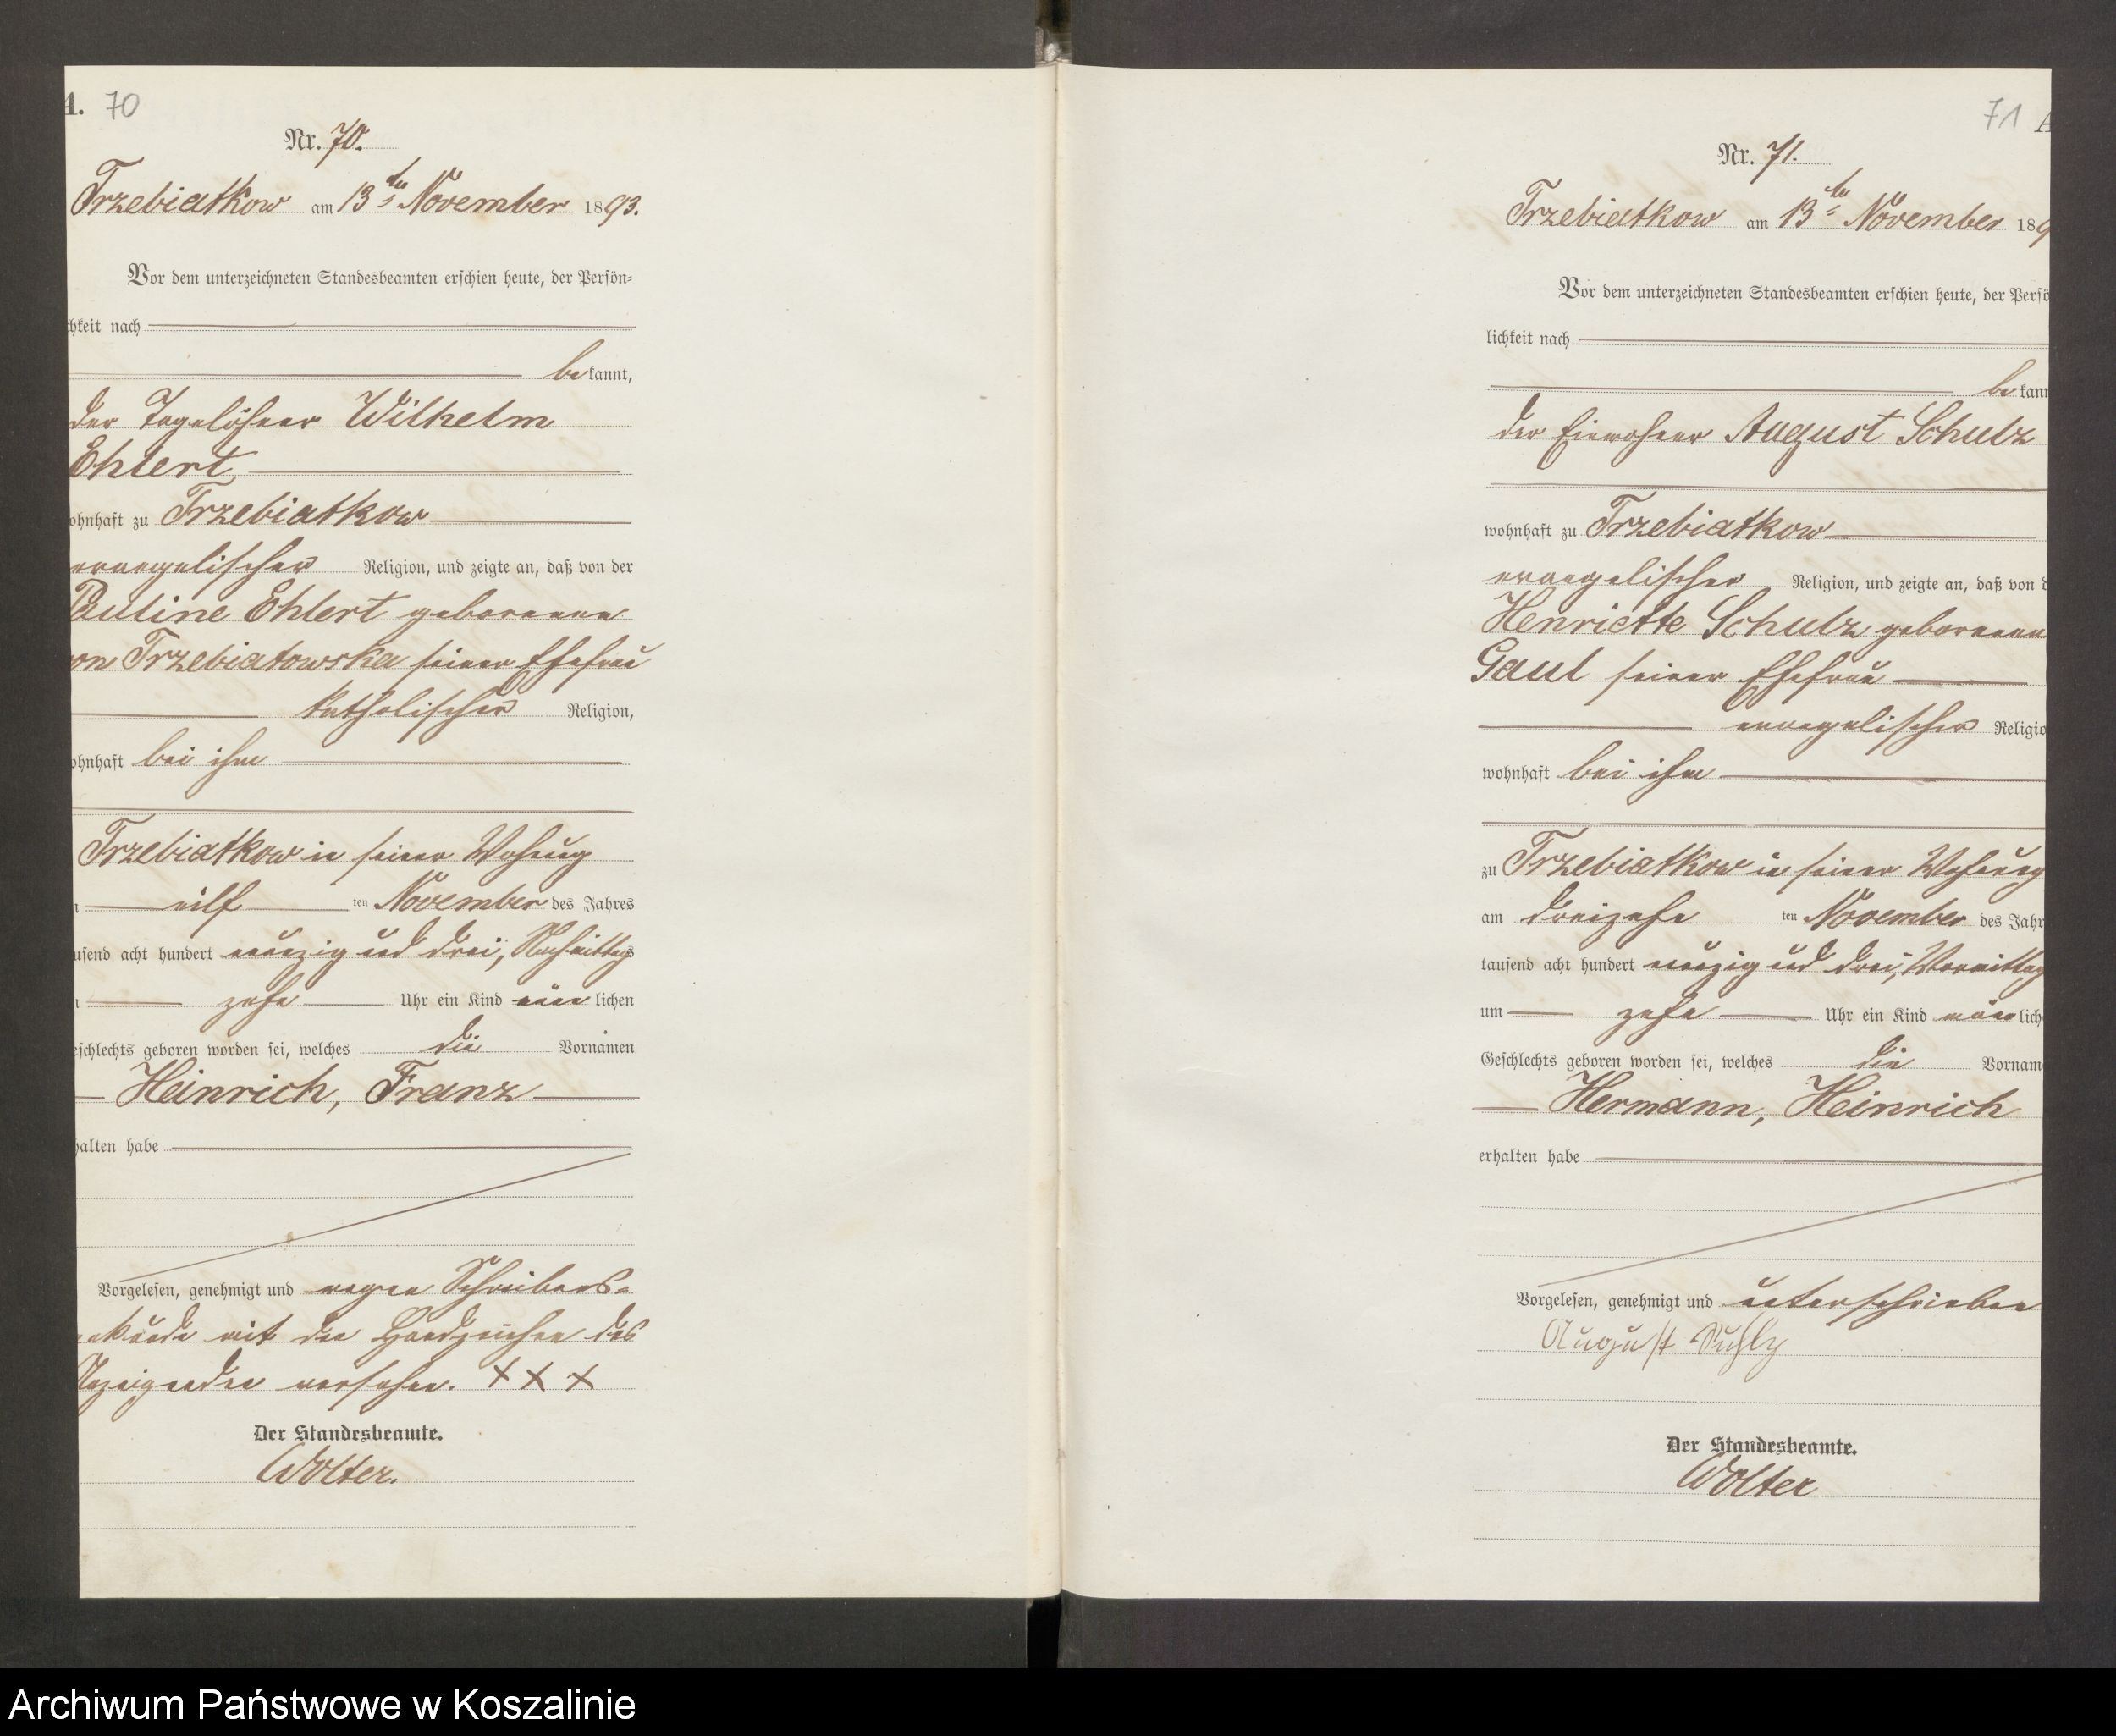 A. 70
Nr. 70.
Trzebiatkow am 13ten November 1893.
Vor dem unterzeichneten Standesbeamten erschien heute, der Persön-
hkeit nach
be kannt,
der Tagelöhner Wilhelm
Ehlert
ohnhaft zu Trzebiatkow
evangelischer Religion, und zeigte an, daß von der
Pauline Ehlert geborenen
von Trzebiatowska seiner Ehefrau
katholischer Religion,
ohnhaft bei ihm
Trzebiatkow in seiner Wohnung
eilf ten November des Jahres
usend acht hundert neunzig und drei, Nachmittags
zehn Uhr ein Kind männ lichen
eschlechts geboren worden sei, welches die Vornamen
Heinrich, Franz
halten habe
Vorgelesen, genehmigt und wegen Schreibens-
unkunde mit den Handzeichen des
Anzeigenden versehen. XXX
Der Standesbeamte.
Wolter.
71 A
Nr. 71.
Trzebiatkow am 13ten November 189
Vor dem unterzeichneten Standesbeamten erschien heute, der Persö
lichkeit nach
be kann
der Einwohner August Schulz
wohnhaft zu Trzebiatkow
evangelischer Religion, und zeigte an, daß von d
Henriette Schulz geborenen
Gaul seiner Ehefrau
evangelischer Religio
wohnhaft bei ihm
zu Trzebiatkow in seiner Wohnung
am dreizehn ten November des Jahr
tausend acht hundert neunzig und drei, Vormittag
um zehn Uhr ein Kind männ lich
Geschlechts geboren worden sei, welches die Vornam
Hermann, Heinrich
erhalten habe
Vorgelesen, genehmigt und unterschrieben
August
Der Standesbeamte.
Wolter
Archiwum Państwowe w Koszalinie